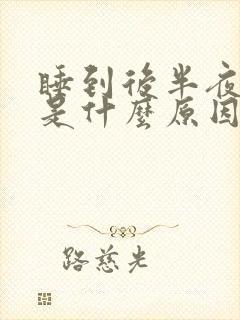 睡到後半夜
是什麼原因
路慈光